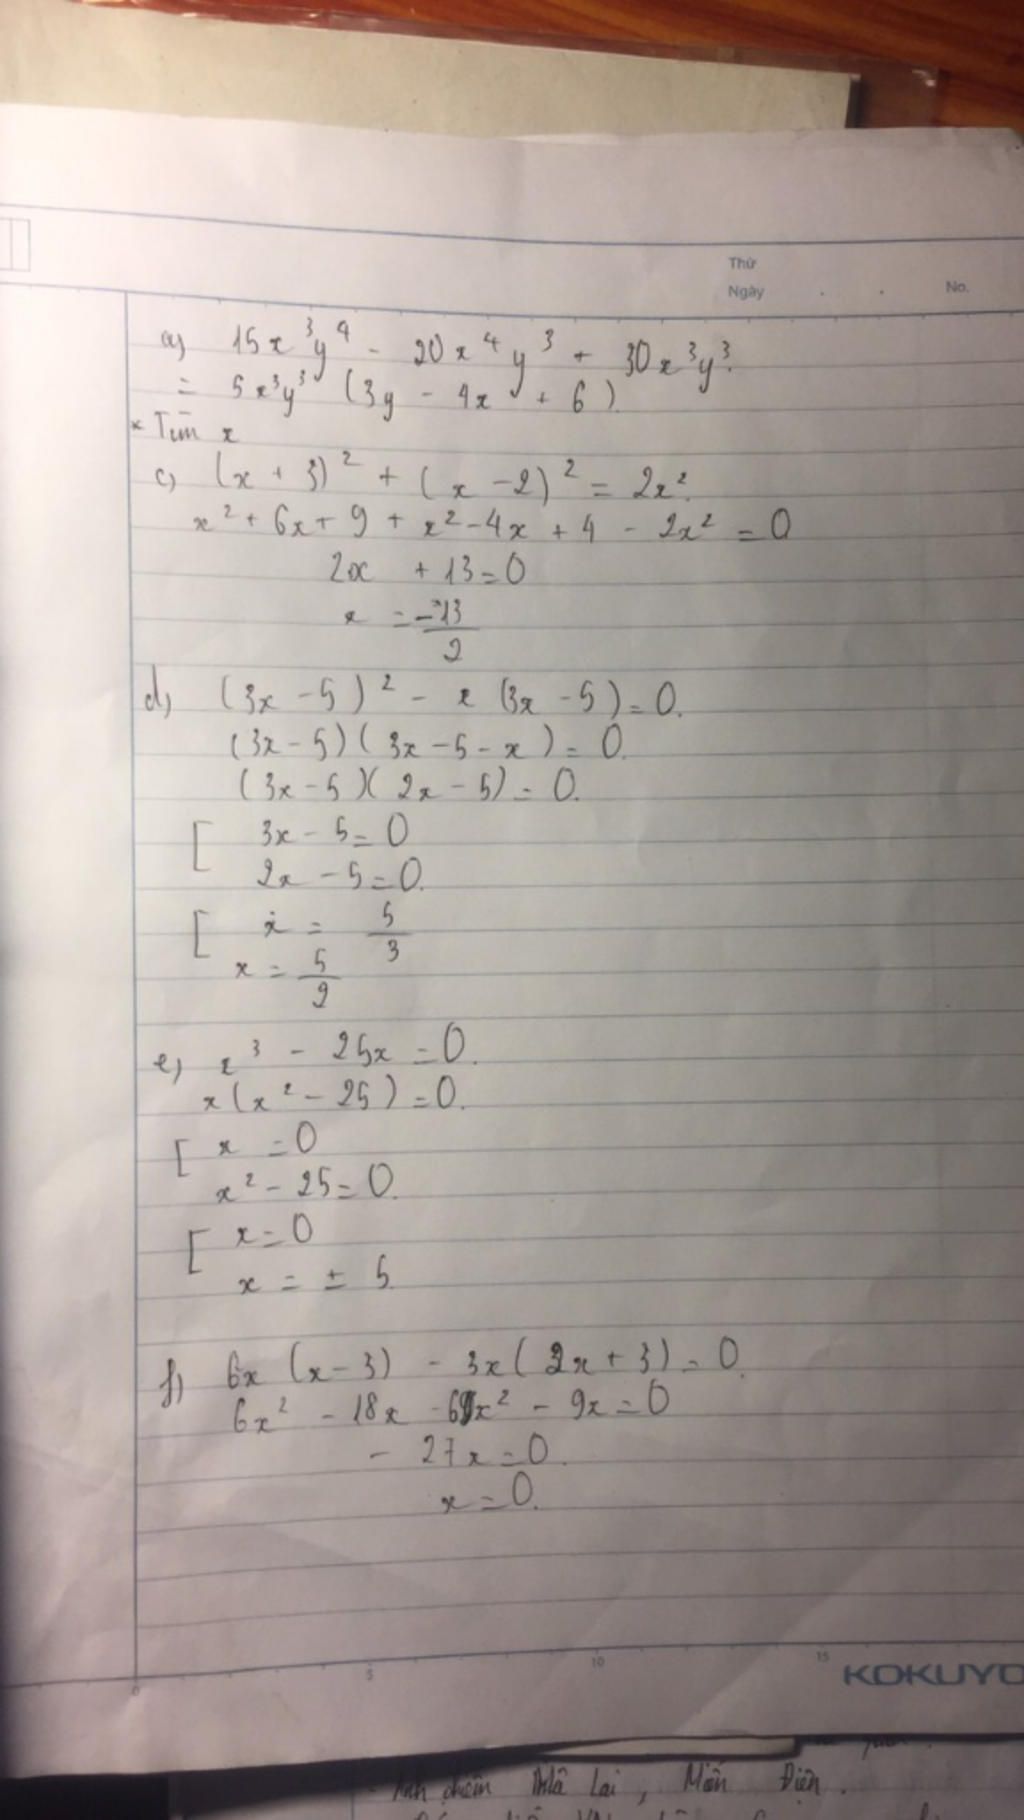 Thứ
Ngày . . No.
a) 15x³y⁴ - 20x⁴y³ + 30x³y³.
= 5x³y³ (3y - 4x + 6).
* Tìm x
c) (x + 3)² + (x - 2)² = 2x².
x² + 6x + 9 + x² - 4x + 4 - 2x² = 0
2x + 13 = 0
x = -13/2
d) (3x - 5)² - x (3x - 5) = 0.
(3x - 5)(3x - 5 - x) = 0.
(3x - 5)(2x - 5) = 0.
[ 3x - 5 = 0
2x - 5 = 0.
[ x = 5/3
x = 5/2
e) x³ - 25x = 0.
x(x² - 25) = 0.
[ x = 0
x² - 25 = 0.
[ x = 0
x = ± 5.
f) 6x (x - 3) - 3x(2x + 3) = 0.
6x² - 18x - 6x² - 9x = 0
- 27x = 0.
x = 0.
0 5 10 15
KOKUYO
lại, Môn Điện.